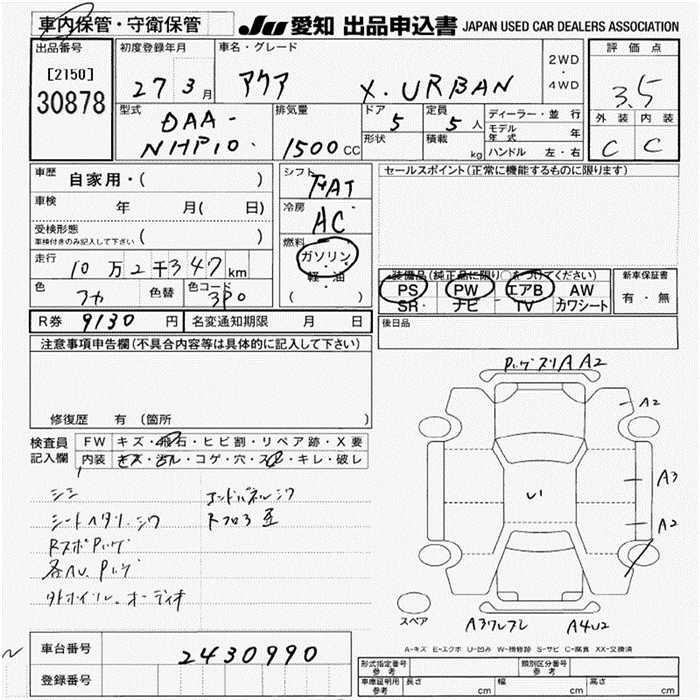 車内保管・守衛保管
JU 愛知 出品申込書 JAPAN USED CAR DEALERS ASSOCIATION
出品番号
[2150]
30878
初度登録年月
27 3 月
車名・グレード
アクア X・URBAN
2WD
・
4WD
評価点
3.5
外装 内装
C C
型式
DAA-
NHP10
排気量
1500 CC
ドア
5
定員
5 人
形状
積載
kg
ディーラー・並行
モデル年式 年
ハンドル 左・右
車歴
自家用・( )
車検
年 月( 日)
受検形態
車検付きのみ記入して下さい ( )
走行
10 万 2 千 347 km
色
色替
色コード
3P0
シフト
FAT
冷房
AC
燃料
ガソリン
・
軽・油
・
( )
セールスポイント(正常に機能するものに限ります)
装備品(純正品に限り○をつけてください)
PS PW エアB AW
SR ナビ TV カワシート
新車保証書
有・無
後日品
R券 9130 円 名変通知期限 月 日
注意事項申告欄(不具合内容等は具体的に記入して下さい)
修復歴 有 (箇所
検査員
記入欄
FW キズ・飛石・ヒビ割・リペア跡・X要
内装 キズ・ヨゴレ・コゲ・穴・スレ・キレ・破レ
シミ
シートヘタリ、シワ
エンドパネルシワ
A A2
A2
A3
A2
A4U2
スペア
A-キズ E-エクボ U-凹み W-補修跡 S-サビ C-腐食 XX-交換済
車台番号
2430990
登録番号
形式指定番号
参考
類別区分番号
参考
車庫証明用
参考
長さ cm 幅 cm 高さ cm